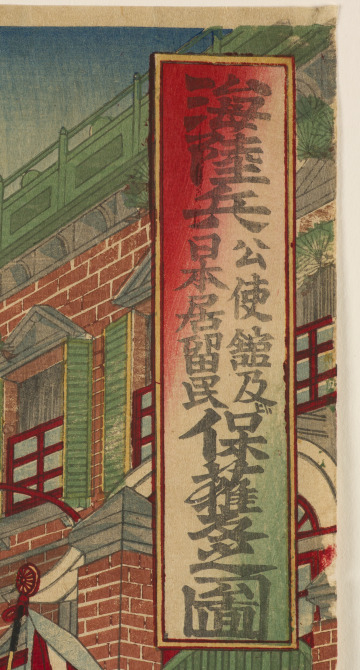 海陸兵
公使舘及ビ
日本居留民
保護之圖